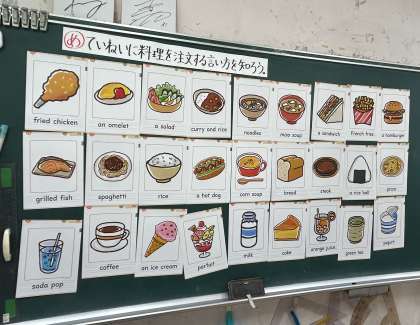 め ていねいに料理を注文する言い方を知ろう。
fried chicken
an omelet
a salad
curry and rice
noodles
miso soup
a sandwich
French fries
a hamburger
grilled fish
spaghetti
rice
a hot dog
corn soup
bread
steak
a rice ball
pizza
soda pop
coffee
an ice cream
parfait
milk
cake
orange juice
green tea
yogurt